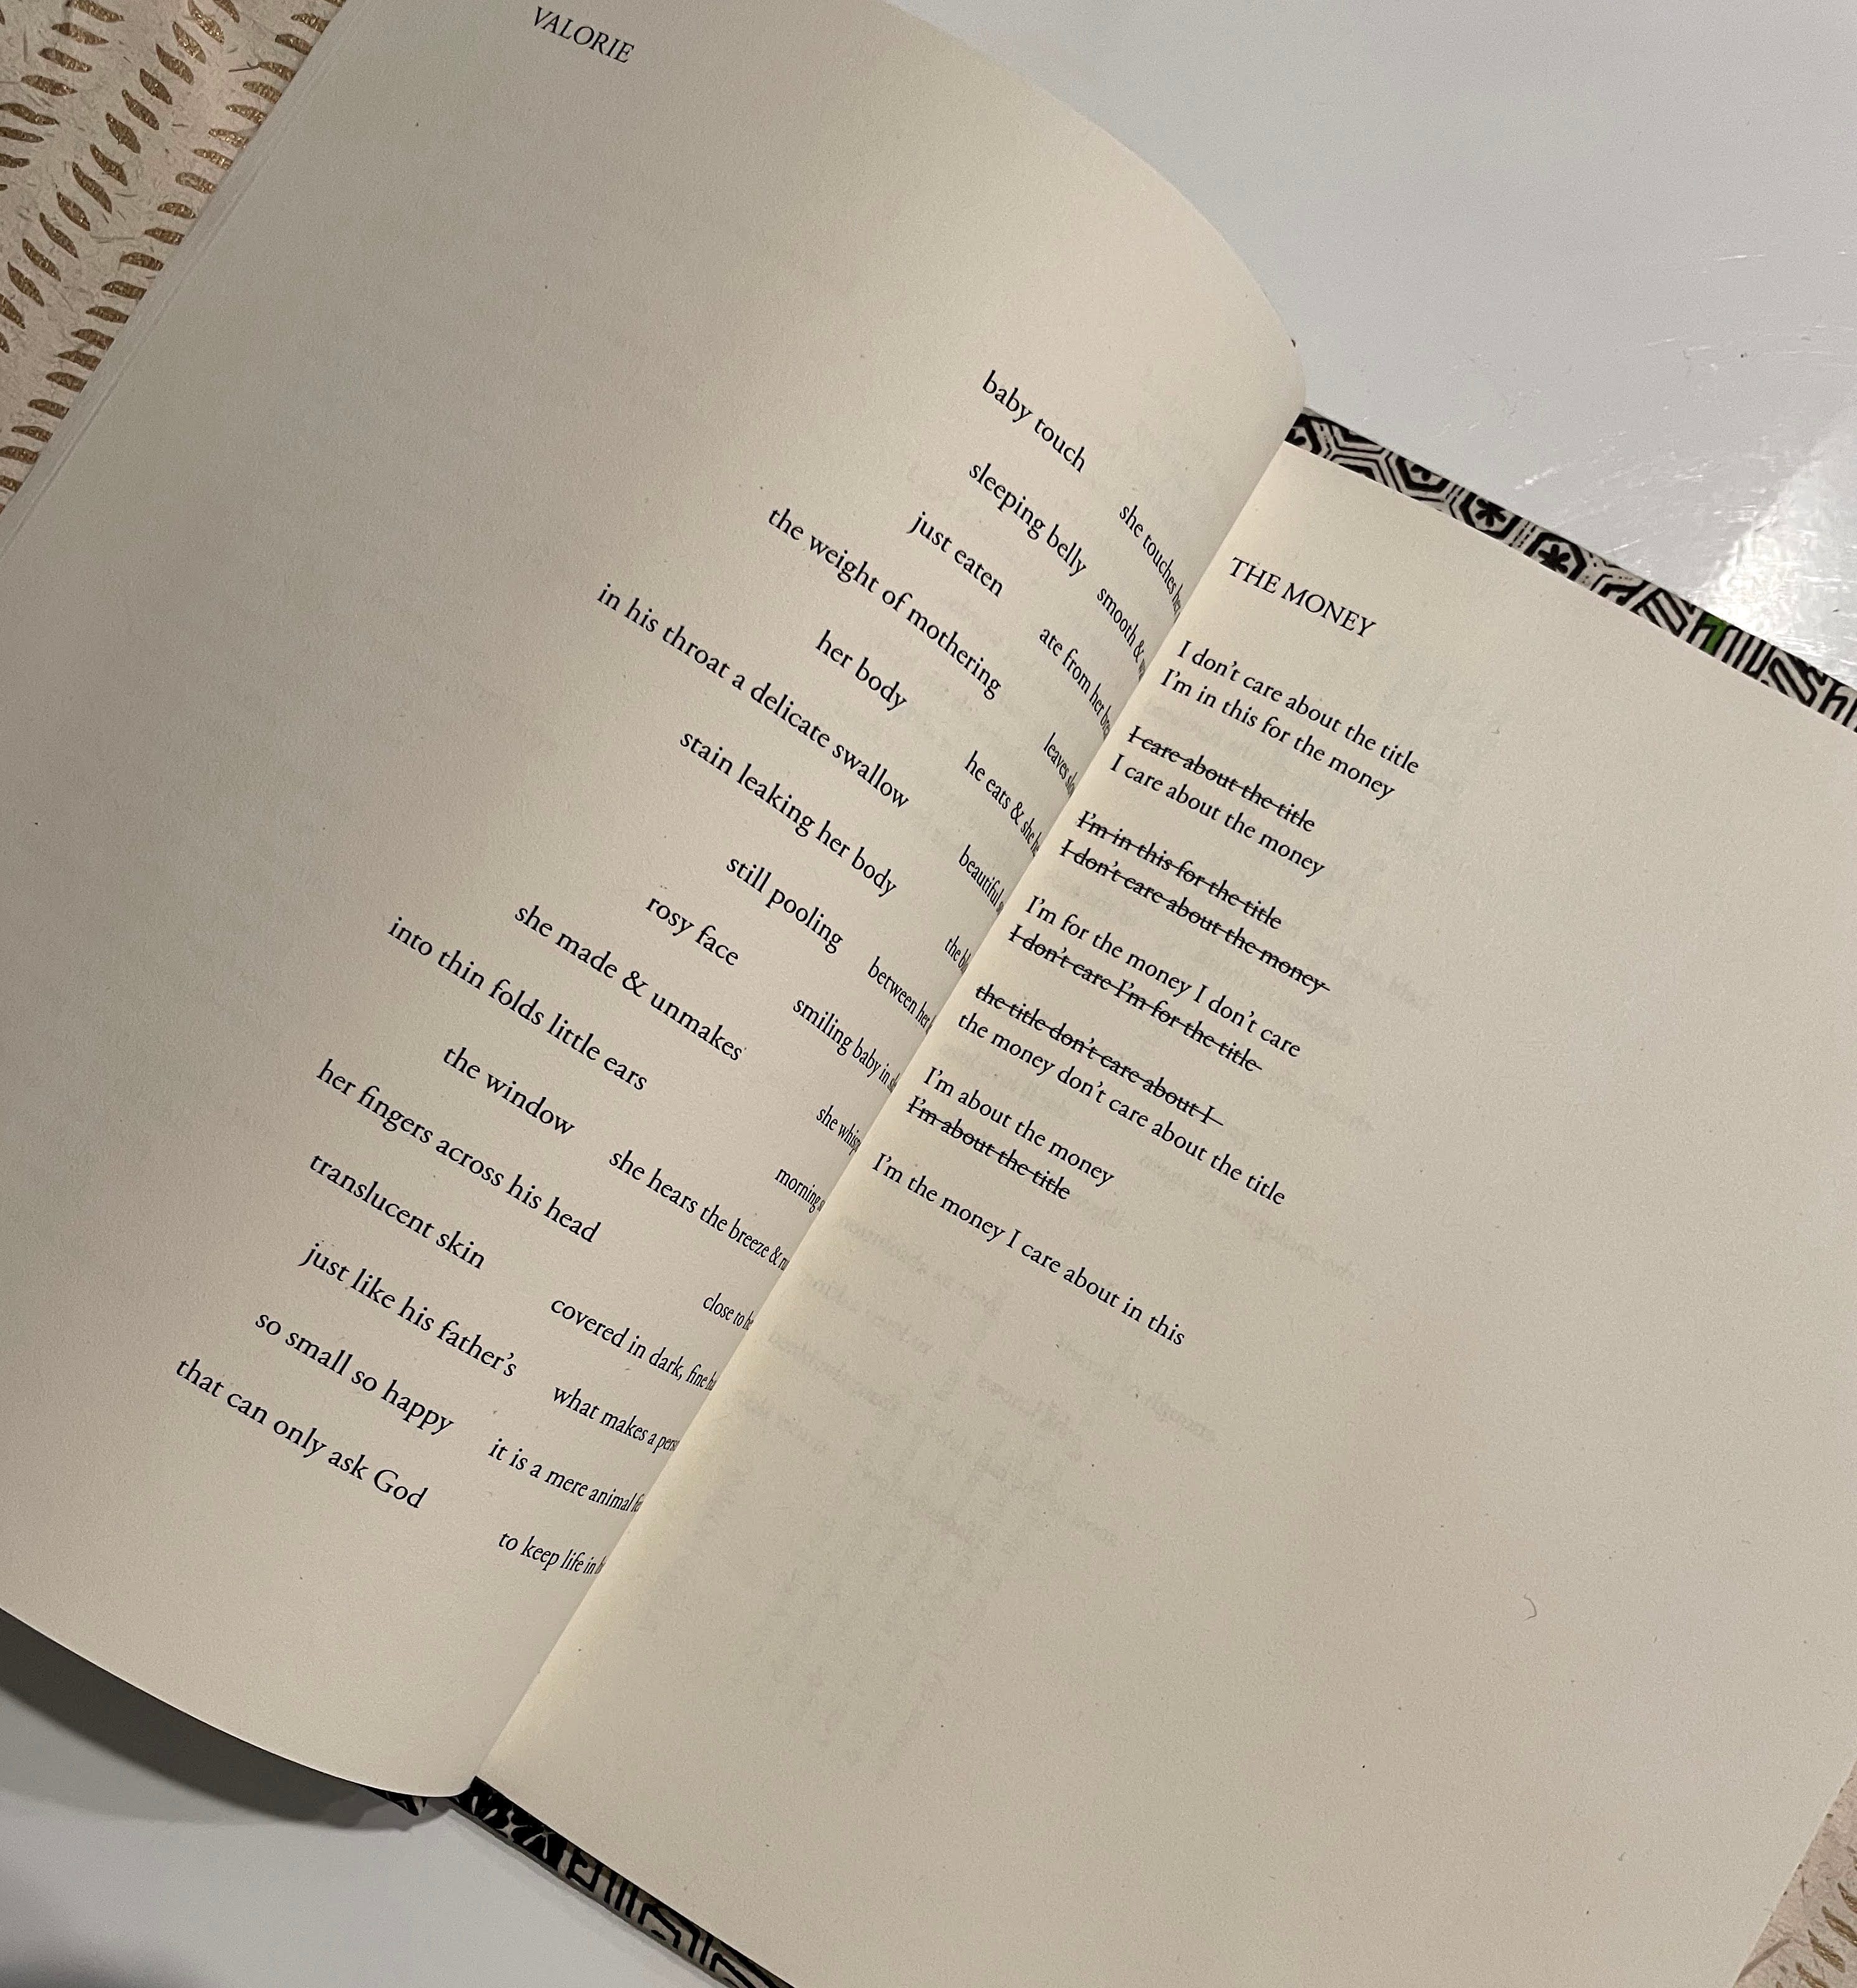 VALORIE
baby touch she touches her
sleeping belly smooth &
just eaten ate from her
the weight of mothering leaves
her body he eats & she
in his throat a delicate swallow beautiful
stain leaking her body the
still pooling between her
rosy face smiling baby in
she made & unmakes she
into thin folds little ears morning
the window she hears the breeze &
her fingers across his head close to
translucent skin covered in dark, fine
just like his father's what makes a
so small so happy it is a mere animal
that can only ask God to keep life in
THE MONEY
I don't care about the title
I'm in this for the money
I care about the title
I care about the money
I'm in this for the title
I don't care about the money
I'm for the money I don't care
I don't care I'm for the title
the title don't care about I
the money don't care about the title
I'm about the money
I'm about the title
I'm the money I care about in this